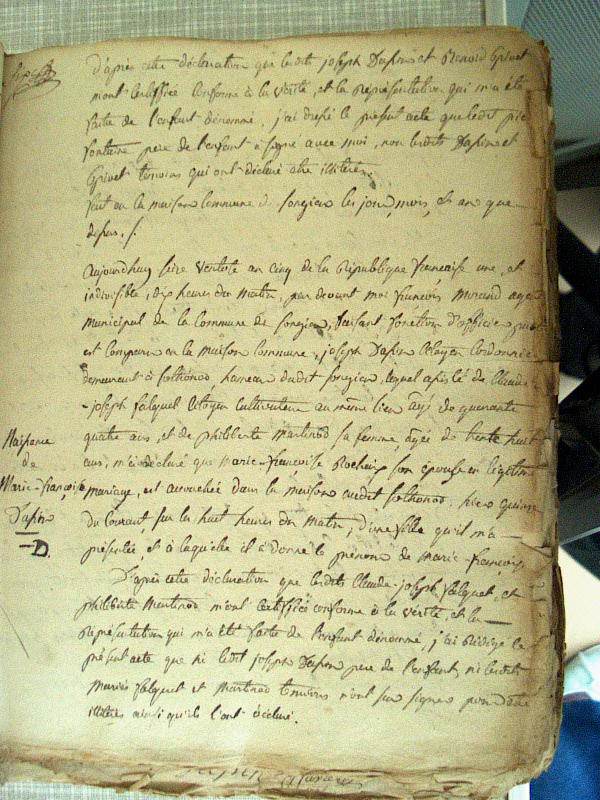 d'après cette déclaration que lesdits joseph Dapin et Benoid Grivet
m'ont certiffiée conforme à la vérité, et la représentation qui m'a été
faite de l'enfant dénommé, j'ai dressé le présent acte que ledit
fontaine pere de l'enfant a signé avec moi, non lesdits Dapin et
Grivet temoins qui ont déclaré etre illiterés.
fait en la maison Commune de songieu les jour, mois, et an que
dessus. /.
aujourdhuy seize Ventose an cinq de la République française une, et
indivisible, dix heures du Matin, par devant moi françois Morand agent
Municipal de la Commune de songieu, faisant fonction d'officier
est comparu en la maison Commune, joseph Dapin Citoyen Cordonnier
demeurant à sothonod, hameau dudit songieu, lequel assisté de Claude
-joseph falquet Citoyen Cultivateur au même lieu âgé de quarante
quatre ans, et de philiberte Martinod sa femme, âgée de trente huit
ans, m'a déclaré que Marie-françoise son epouse en légitime
mariage, est accouchée dans la maison audit sothonod, hier quinze
du Courant, sur la huit heures du Matin, d'une fille qu'il m'a
présentée, et à laquelle il a donné le prénom de Marie-françoise
Naissance
de
Marie-françoise
Dapin
D.
D'après cette déclaration que lesdits Claude-joseph falquet, et
philiberte Martinod m'ont certiffiée conforme à la vérité, et la
Représentation qui m'a été faite de l'enfant dénommé, j'ai Rédigé le
présent acte que ni ledit joseph Dapin pere de l'enfant, ni lesdits
Mariés falquet et Martinod temoins n'ont sçu signer pour être
illiterés ainsi qu'ils l'ont déclaré.